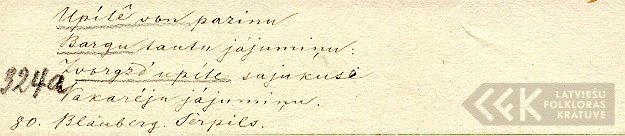 Upítê von pazinu
Bargu tautu jájumiņu:
Zvorgzd' upíte sajukusé
324a
Vakaréju jájumiņu.
80. Bláuberg. Sérpils.
LATVIEŠU
FOLKLORAS
KRĀTUVE